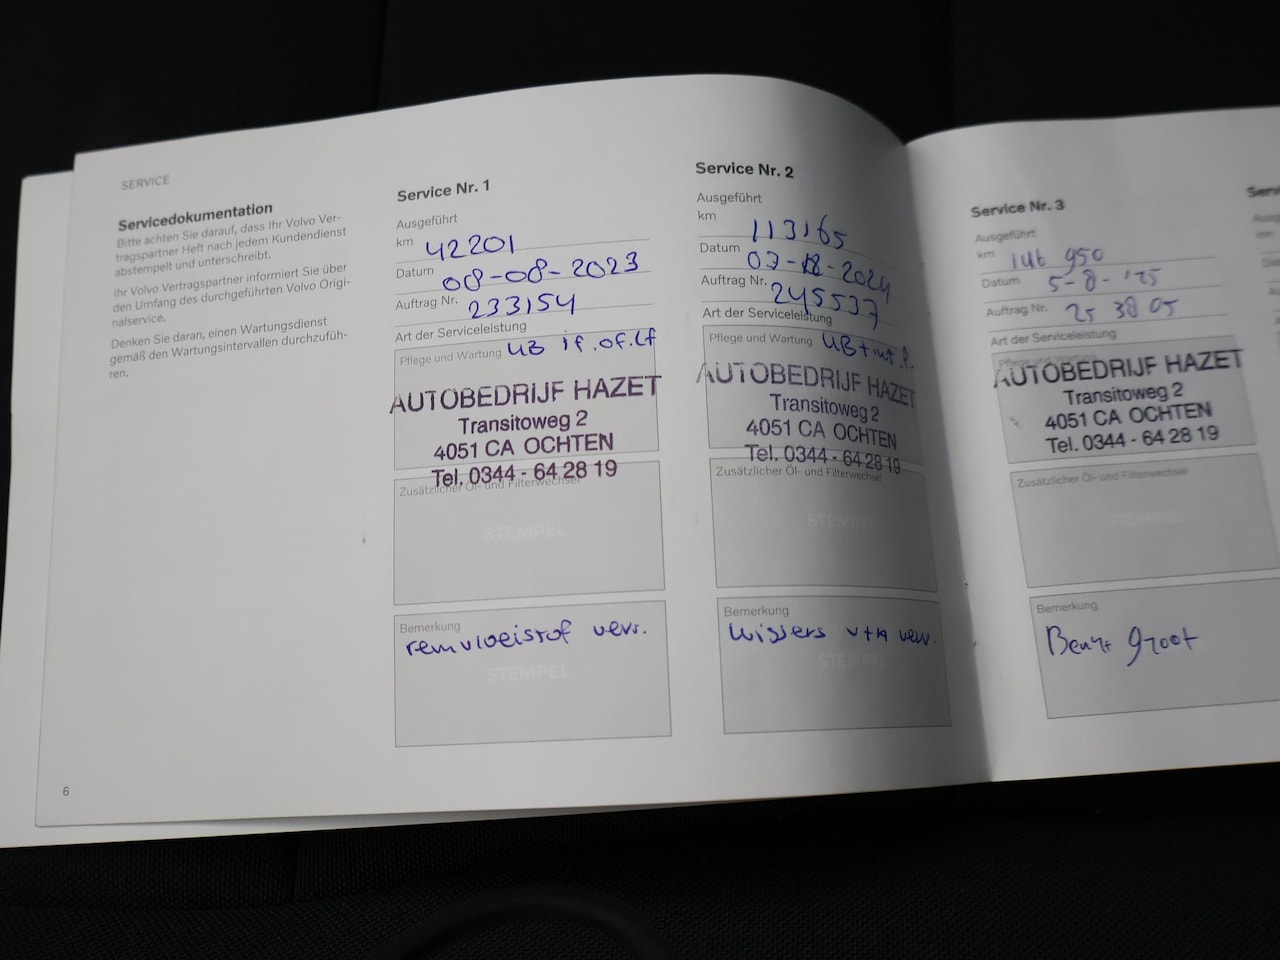 SERVICE
Servicedokumentation
Bitte achten Sie darauf, dass Ihr Volvo Ver-
tragspartner Heft nach jedem Kundendienst
abstempelt und unterschreibt.
Ihr Volvo Vertragspartner informiert Sie über
den Umfang des durchgeführten Volvo Origi-
nalservice.
Denken Sie daran, einen Wartungsdienst
gemäß den Wartungsintervallen durchzufüh-
ren.
6
Service Nr. 1
Ausgeführt
km 42201
Datum 08-08-2023
Auftrag Nr. 233154
Art der Serviceleistung
Pflege und Wartung UB if.of.lf
AUTOBEDRIJF HAZET
Transitoweg 2
4051 CA OCHTEN
Tel. 0344 - 64 28 19
Zusätzlicher Öl- und Filterwechsel
STEMPEL
Bemerkung
remvloeistof verv.
STEMPEL
Service Nr. 2
Ausgeführt
km 113165
Datum 03-12-2024
Auftrag Nr. 245537
Art der Serviceleistung
Pflege und Wartung UB + int.f.
AUTOBEDRIJF HAZET
Transitoweg 2
4051 CA OCHTEN
Tel. 0344 - 64 28 19
Zusätzlicher Öl- und Filterwechsel
STEMPEL
Bemerkung
Wissers v+a verv.
STEMPEL
Service Nr. 3
Ausgeführt
km 146 950
Datum 5-8-'25
Auftrag Nr. 25 38 05
Art der Serviceleistung
Pflege und Wartung
AUTOBEDRIJF HAZET
Transitoweg 2
4051 CA OCHTEN
Tel. 0344 - 64 28 19
Zusätzlicher Öl- und Filterwechsel
STEMPEL
Bemerkung
Beurt groot